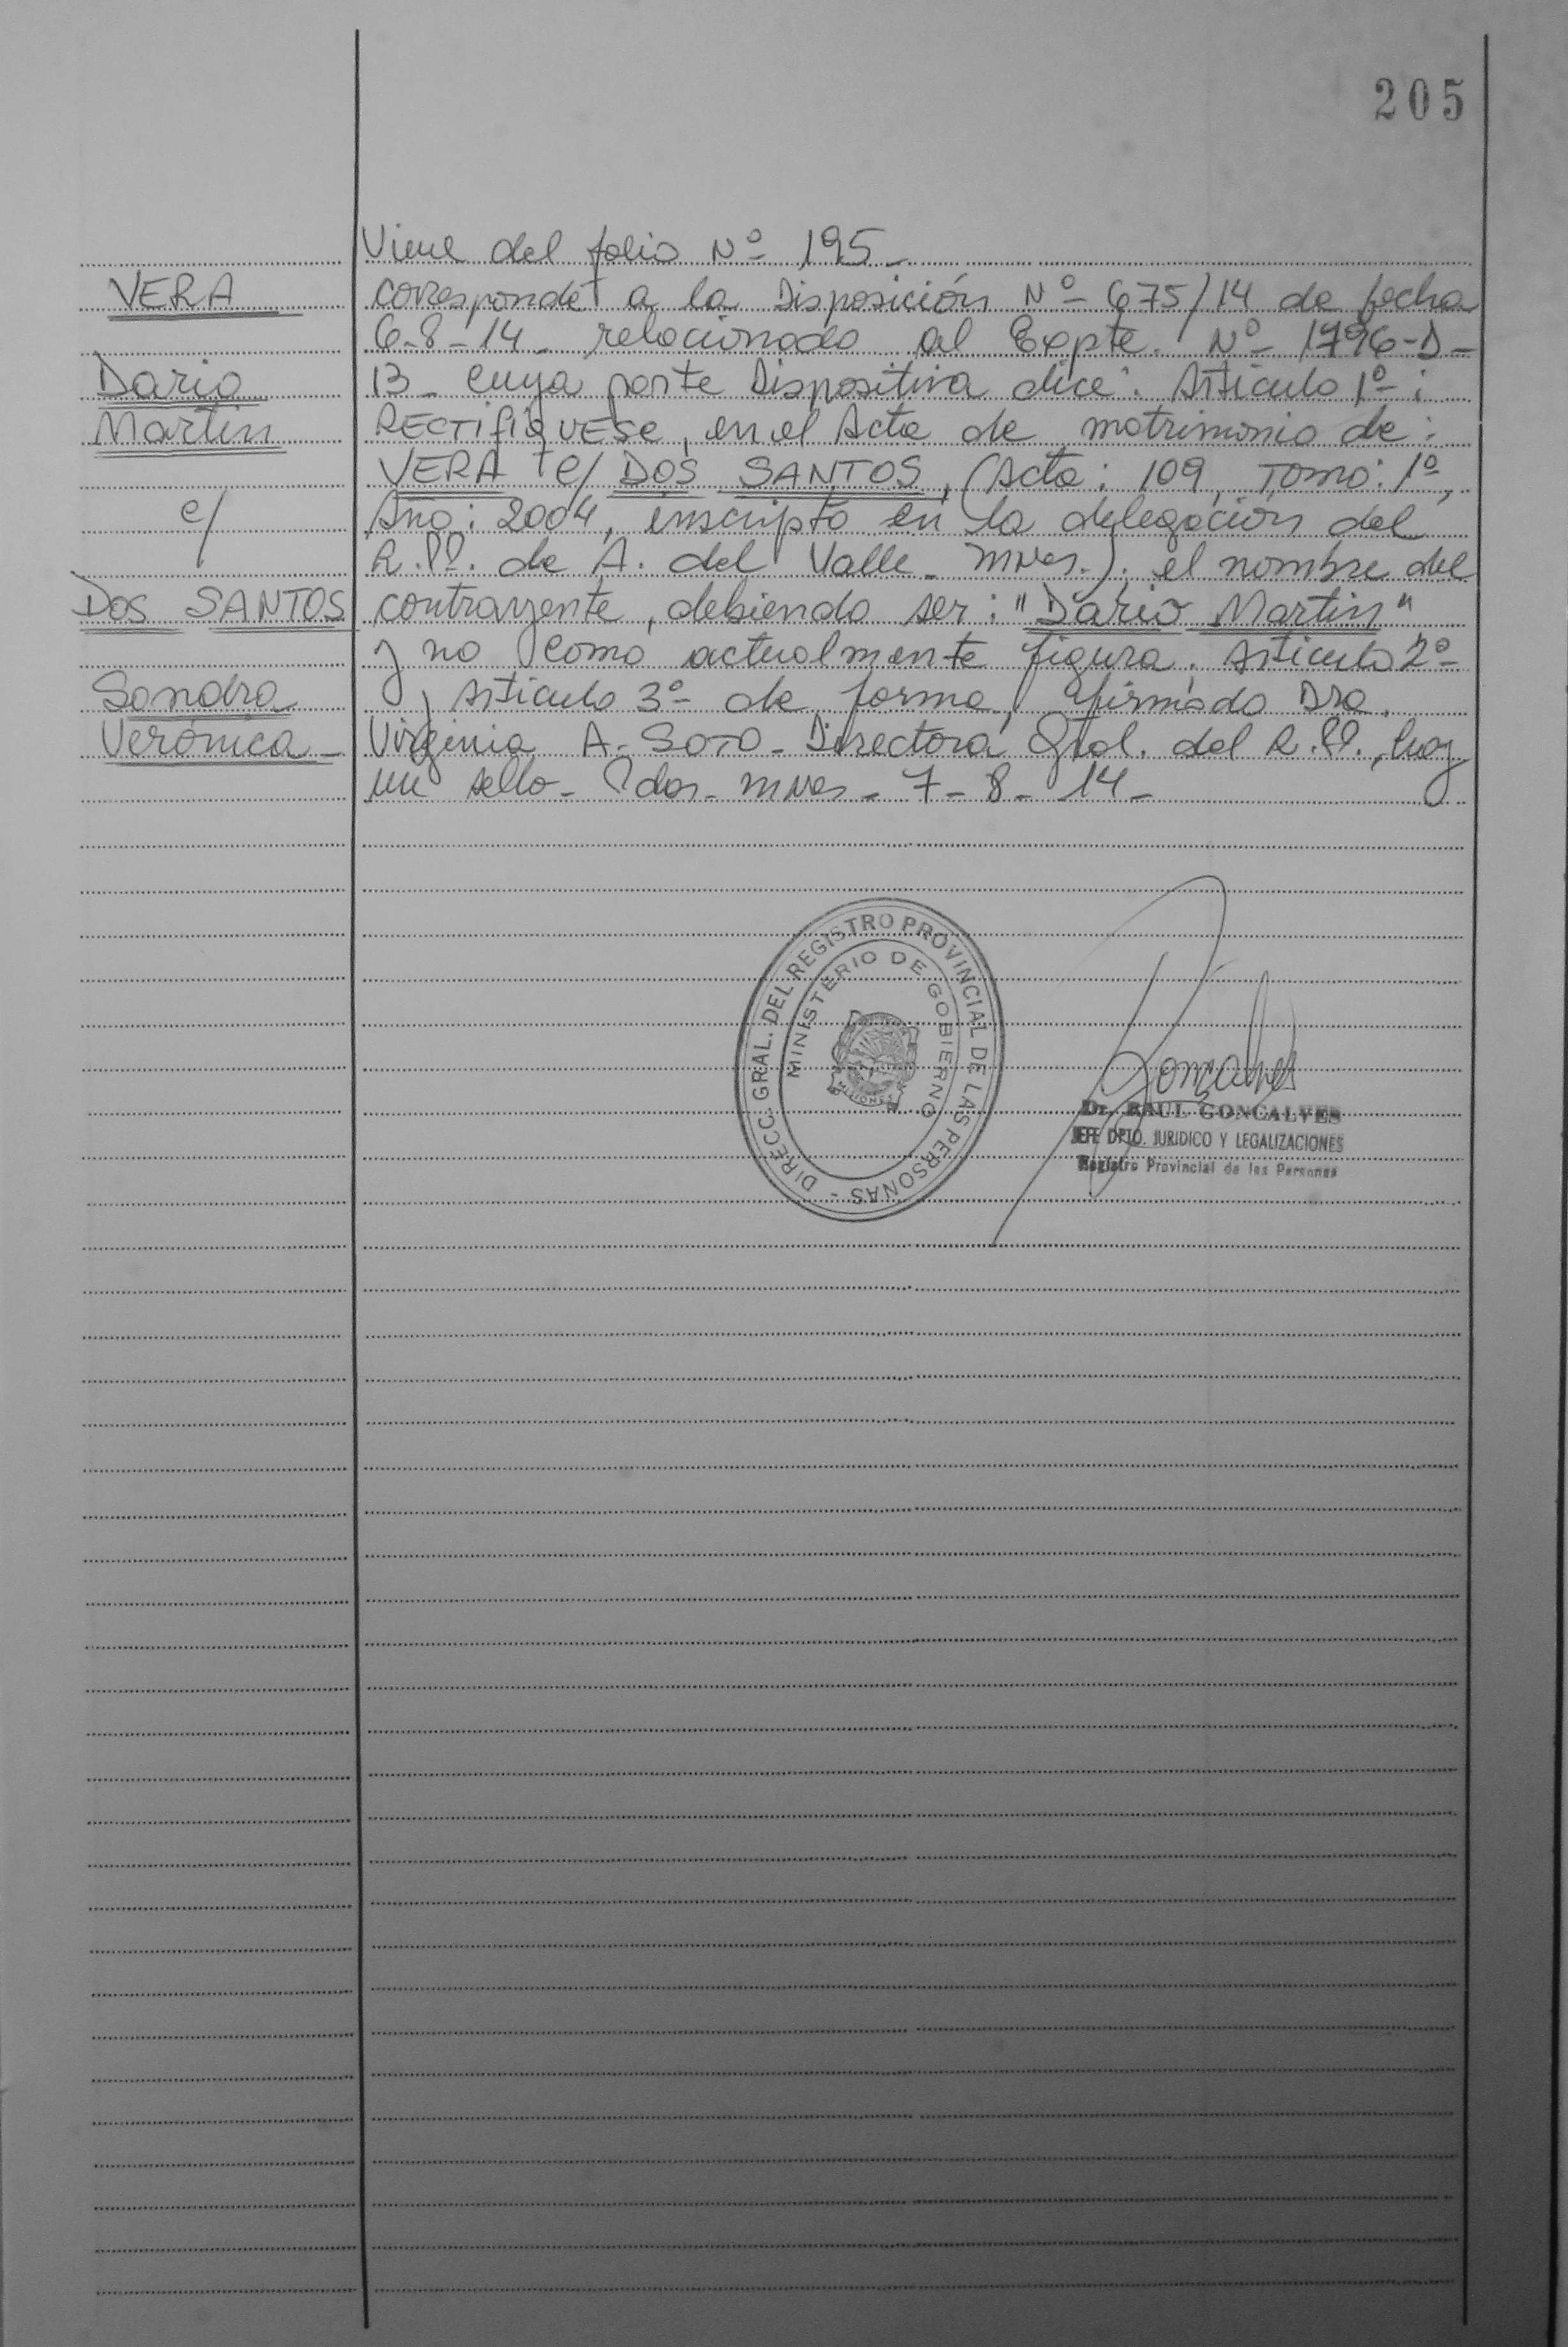 205
Viene del folio Nº 195-
VERA
corresponde a la Disposición Nº 675/14 de fecha
6-8-14- relacionado al Expte. Nº 1796-D-
Dario
13- cuya parte Dispositiva dice: Artículo 1º:
Martin
RECTIFIQUESE, en el Acta de matrimonio de:
VERA c/ DOS SANTOS, (Acta: 109, Tomo: 1º,
c/
Año: 2004, inscripto en la delegación del
R.PP. de A. del Valle- Mnes.). el nombre del
DOS SANTOS
contrayente, debiendo ser: "Dario Martin"
y no como actualmente figura. Artículo 2º
Sandra
y Artículo 3º de forma, firmado Dra.
Verónica-
Virginia A. SOTO- Directora Gral. del R.PP., hay
un sello- Pdas- Mnes- 7-8-14-
DIRECC. GRAL. DEL REGISTRO PROVINCIAL DE LAS PERSONAS -
MINISTERIO DE GOBIERNO
MISIONES
Goncalves
Dr. RAUL GONCALVES
JEFE DPTO. JURIDICO Y LEGALIZACIONES
Registro Provincial de las Personas